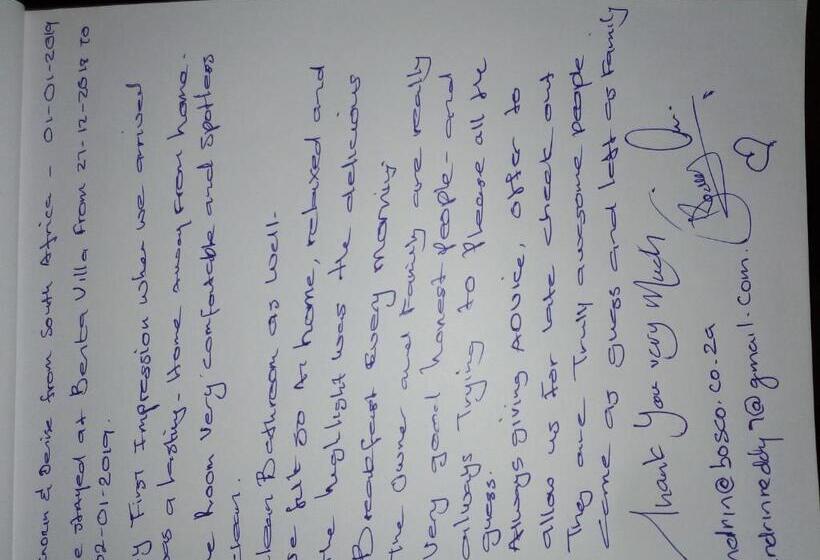 & Denise from South Africa - 01-01-2019
e stayed at Benta Villa from 27-12-2018 to
02-01-2019.
y First Impression when we arrived
as a lasting - Home away from home.
e Room very comfortable and spotless
clean.
lean Bathroom as well.
e felt so at home, relaxed and
the highlight was the delicious
Breakfast every morning.
the owner and Family are really
very good honest people - and
always Trying to please all the
guess.
Always giving Advice, offer to
allow us for late check out
They are Truly awesome people
came as guess and left as Family
Thank You very Much.
ndrin@bosco.co.za
ndrinreddy7@gmail.com.